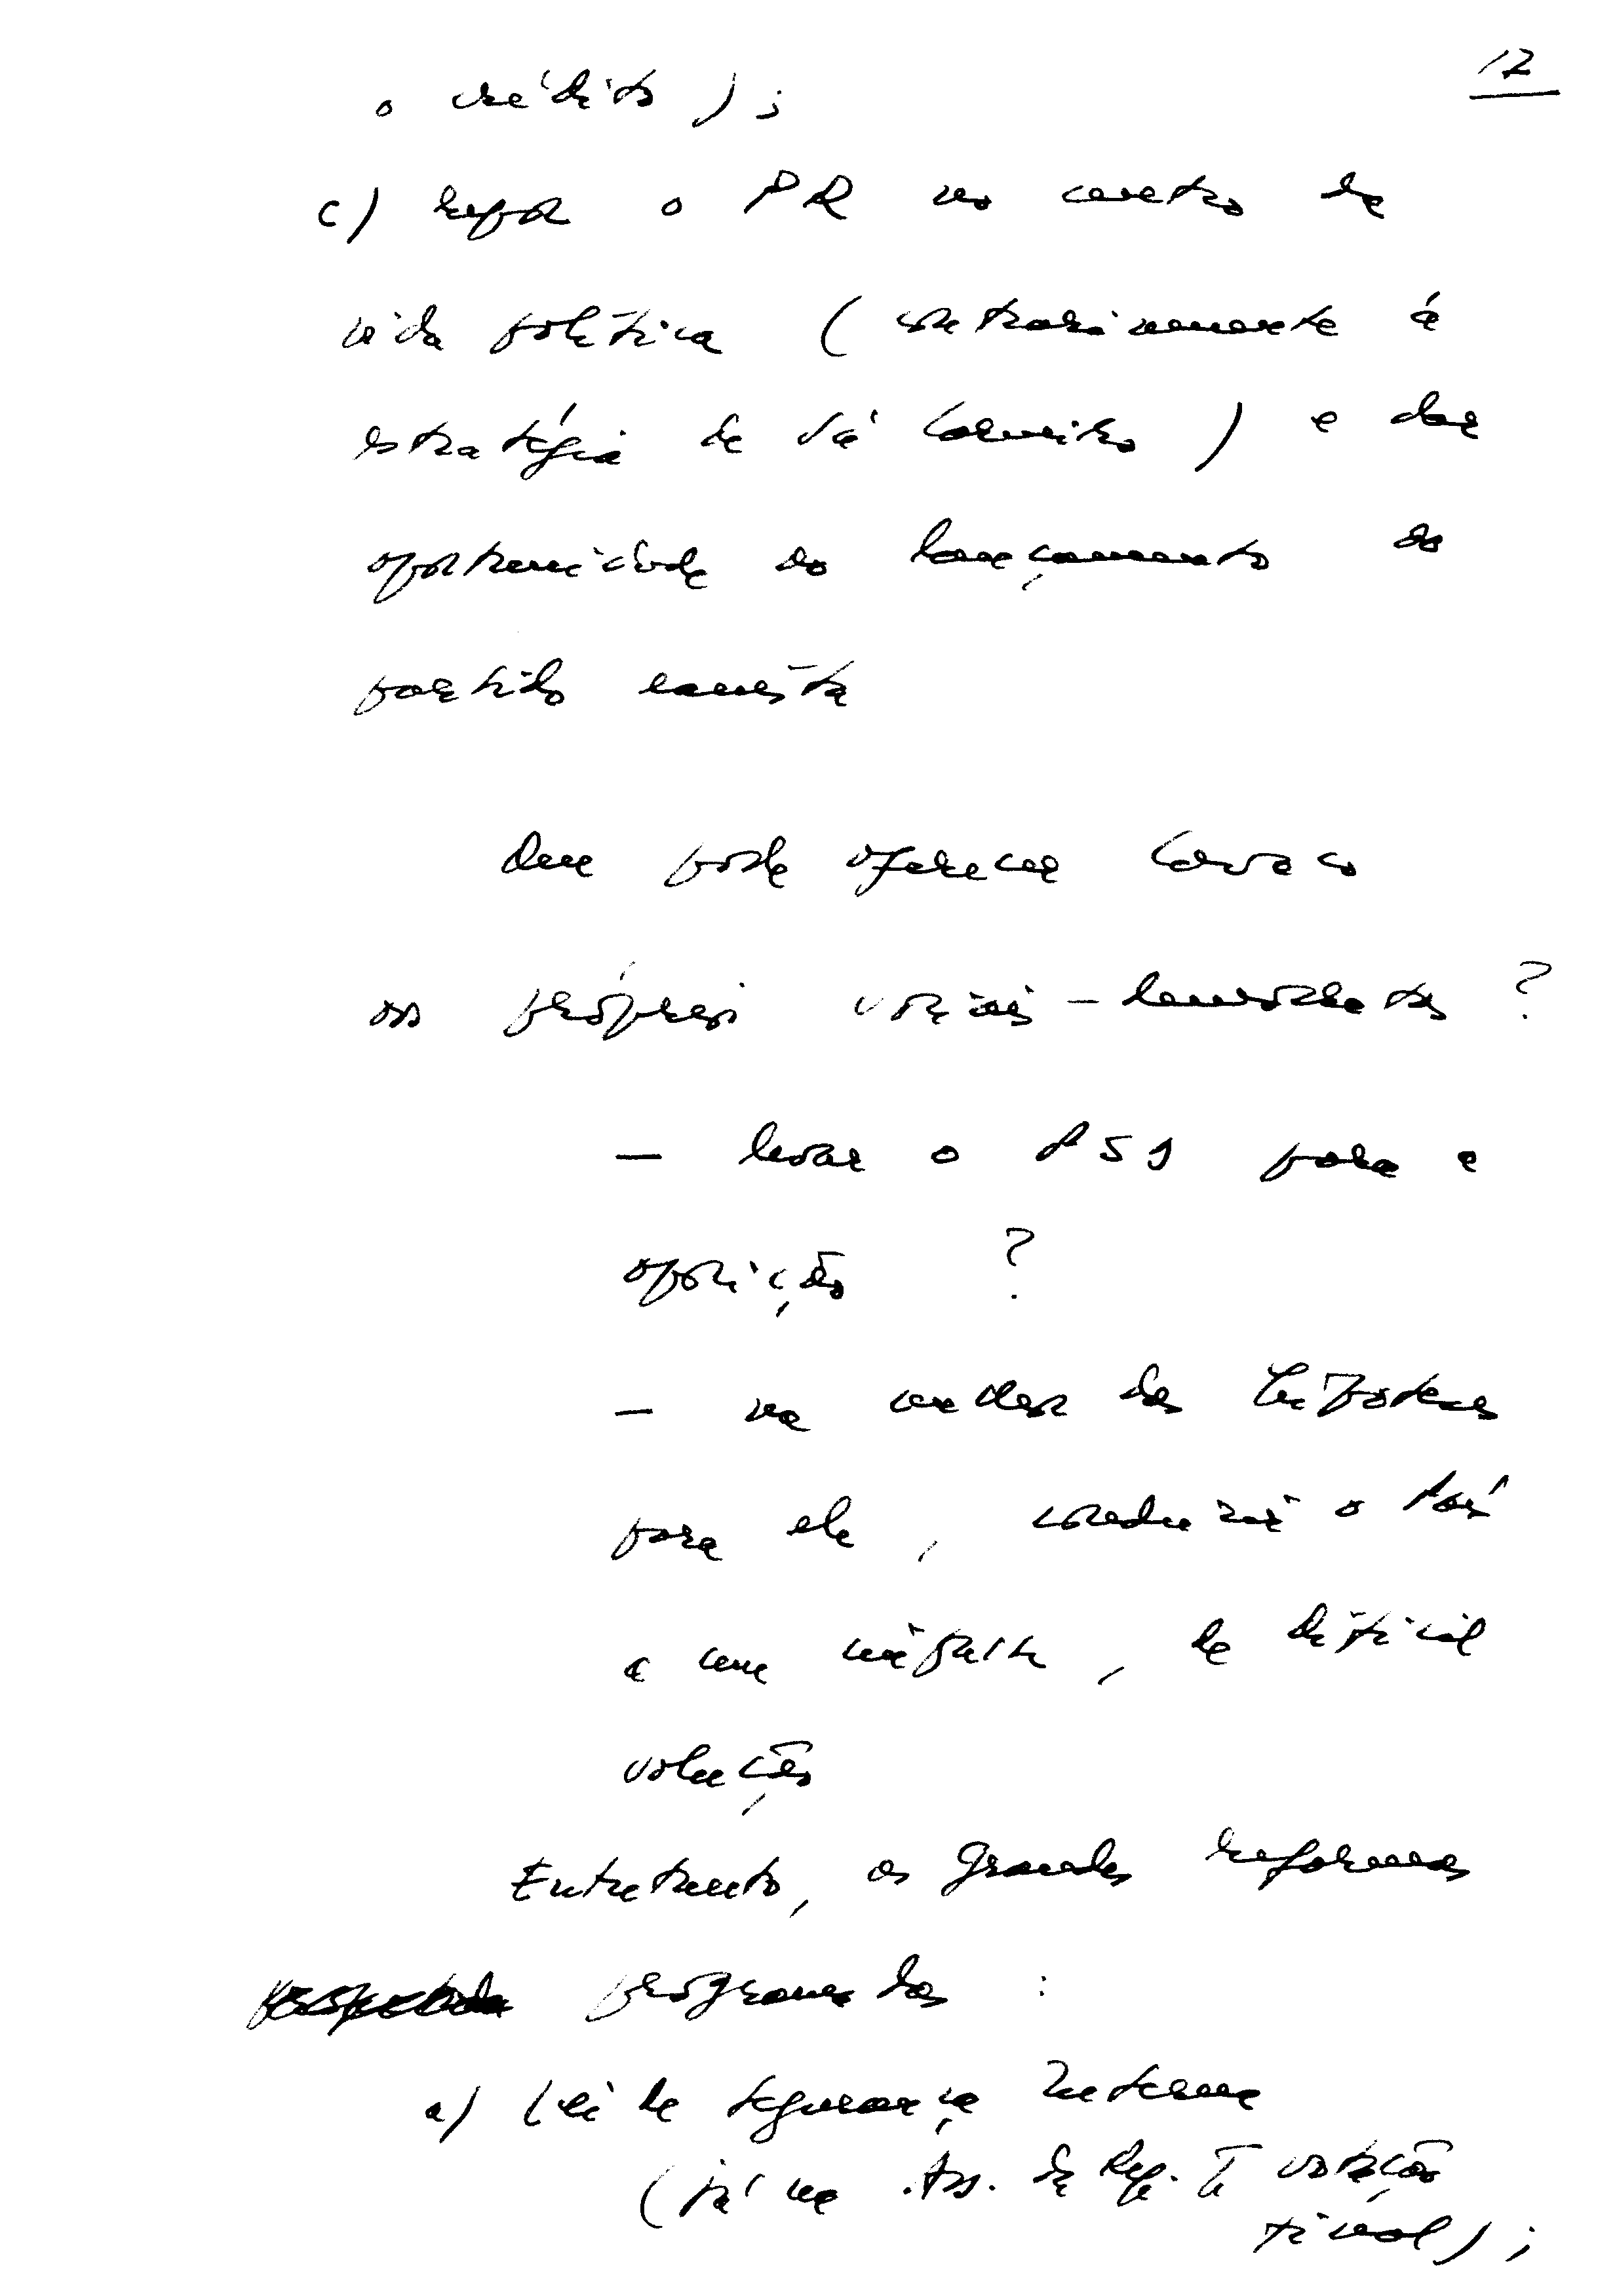 12
o crédito);
c) repor o PR no centro da
vida política (contrariamente à
estratégia de Sá Carneiro) e dar
oportunidade ao lançamento do
partido eanista
Que pode oferecer Cavaco
aos próprios sociais-democratas?
- levar o PSD para a
oposição?
- na melhor das hipóteses
para ele, conduzirá o País
a um impasse, de difícil
solução
Entretanto, as grandes reformas
programadas:
a) Lei de Segurança Interna
(já na Ass. da Rep. votação
final);